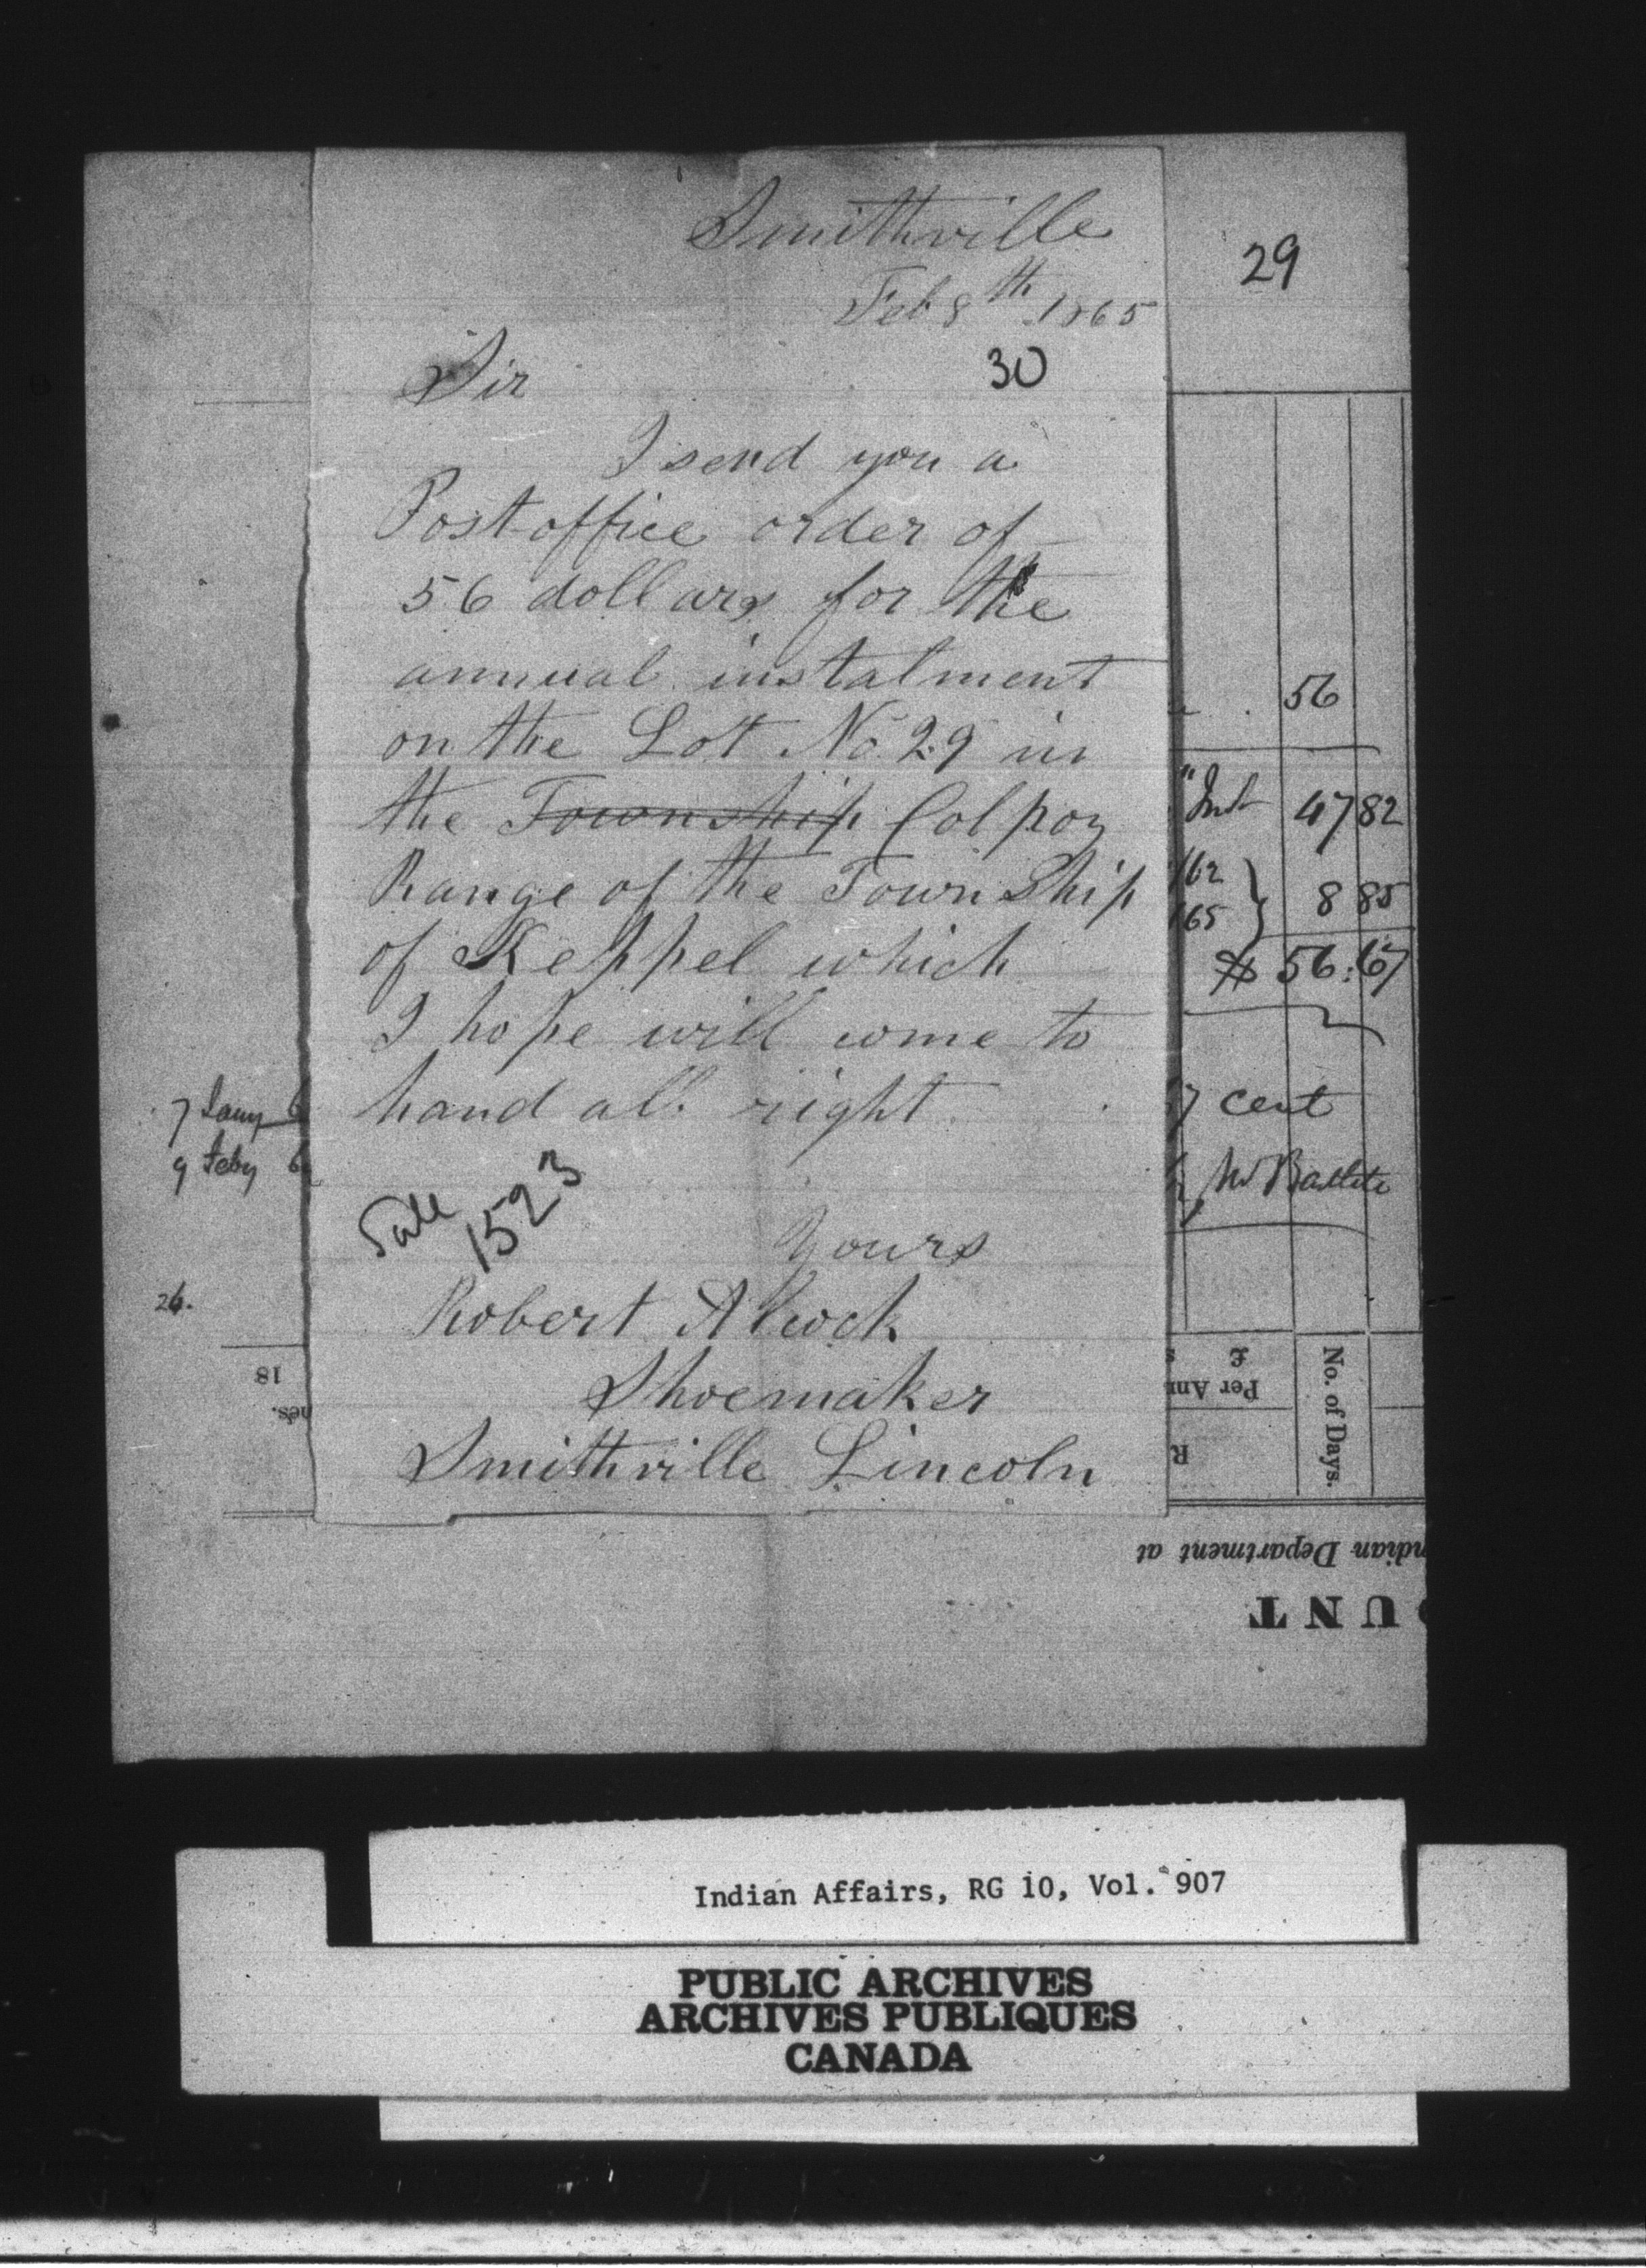 29
Smithville
Feb 8th 1865
30
Sir
I send you a
Postoffice order of
56 dollars for the
annual instalment
on the Lot No 29 in
the Township Colpoy
Range of the TownShip
of Keppel which
I hope will come to
hand all right
Sale
1523
Yours
Robert Alcock
Shoemaker
Smithville Lincoln
56
" Inst 47 82
/62
/65 } 8 85
$ 56:67
7 cent
7 Jany 6
9 Feby 6
26.
18
nes.
£ s
Per Ann
No. of Days.
R
ndian Department at
OUNT
Indian Affairs, RG 10, Vol. 907
PUBLIC ARCHIVES
ARCHIVES PUBLIQUES
CANADA